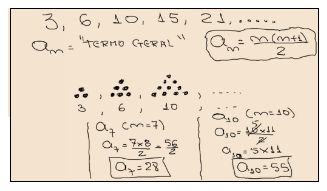 3, 6, 10, 15, 21, .....
am = "TERMO GERAL"
am = m(m+1)/2
, , , .....
3 6 10 ....
a7 (m=7)
a7 = 7x8/2 = 56/2
a7 = 28
a10 (m=10)
5
a10 = 10x11/2
a10 = 5x11
a10 = 55